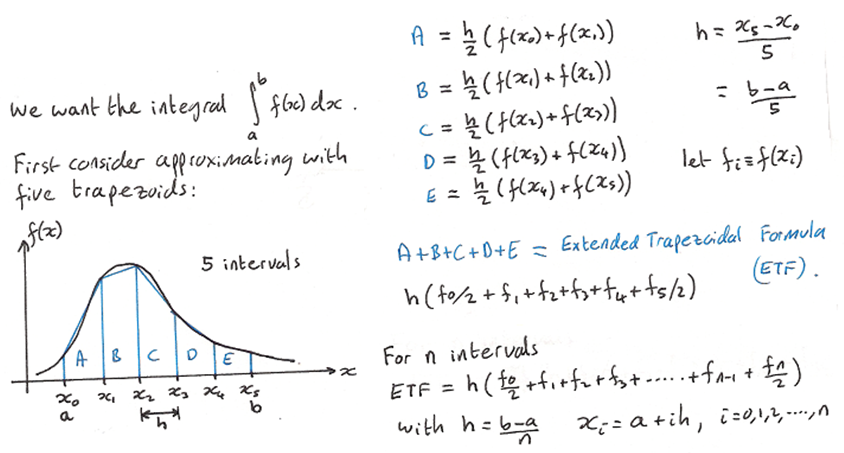 we want the integral ∫ₐᵇ f(x) dx .
First consider approximating with
five trapezoids:
f(x)
5 intervals
A B C D E
x
x₀ x₁ x₂ x₃ x₄ x₅
a h b
A = h/2 ( f(x₀) + f(x₁))
B = h/2 ( f(x₁) + f(x₂))
C = h/2 ( f(x₂) + f(x₃))
D = h/2 ( f(x₃) + f(x₄))
E = h/2 ( f(x₄) + f(x₅))
h = (x₅ - x₀)/5
= (b-a)/5
let fᵢ ≡ f(xᵢ)
A+B+C+D+E = Extended Trapezoidal Formula
(ETF).
h ( f0/2 + f₁ + f₂ + f₃ + f₄ + f₅/2 )
For n intervals
ETF = h ( f0/2 + f₁ + f₂ + f₃ + ..... + fₙ₋₁ + fn/2 )
with h = (b-a)/n xᵢ = a + ih, i=0,1,2,....,n